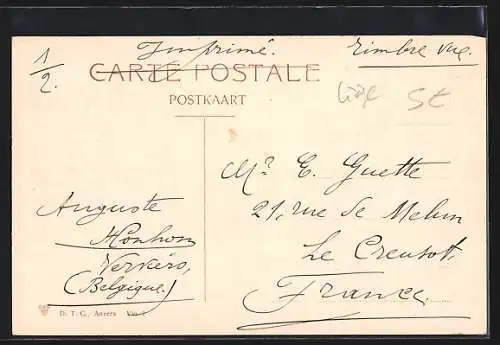 1/2. Imprimé. Timbre vue.
CARTE POSTALE
POSTKAART
Liége 5c
Mr. E. Guette
21, rue de Melun
Le Creusot.
France.
Auguste
Honhon
Verviers,
(Belgique.)
D. T. C., Anvers